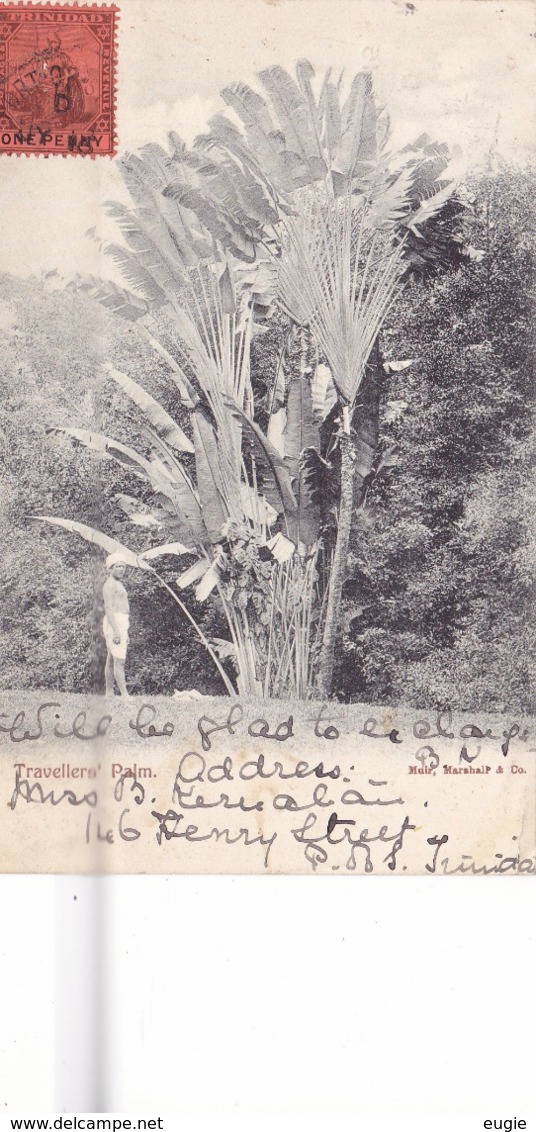 TRINIDAD
REVENUE
ONE PENNY
Will be glad to exchange
B K
Travellers' Palm.
Address.
Muir, Marshall & Co.
Miss B. Kernahan.
146 Henry Street
P. of S. Trinidad
delcampe.net
eugie